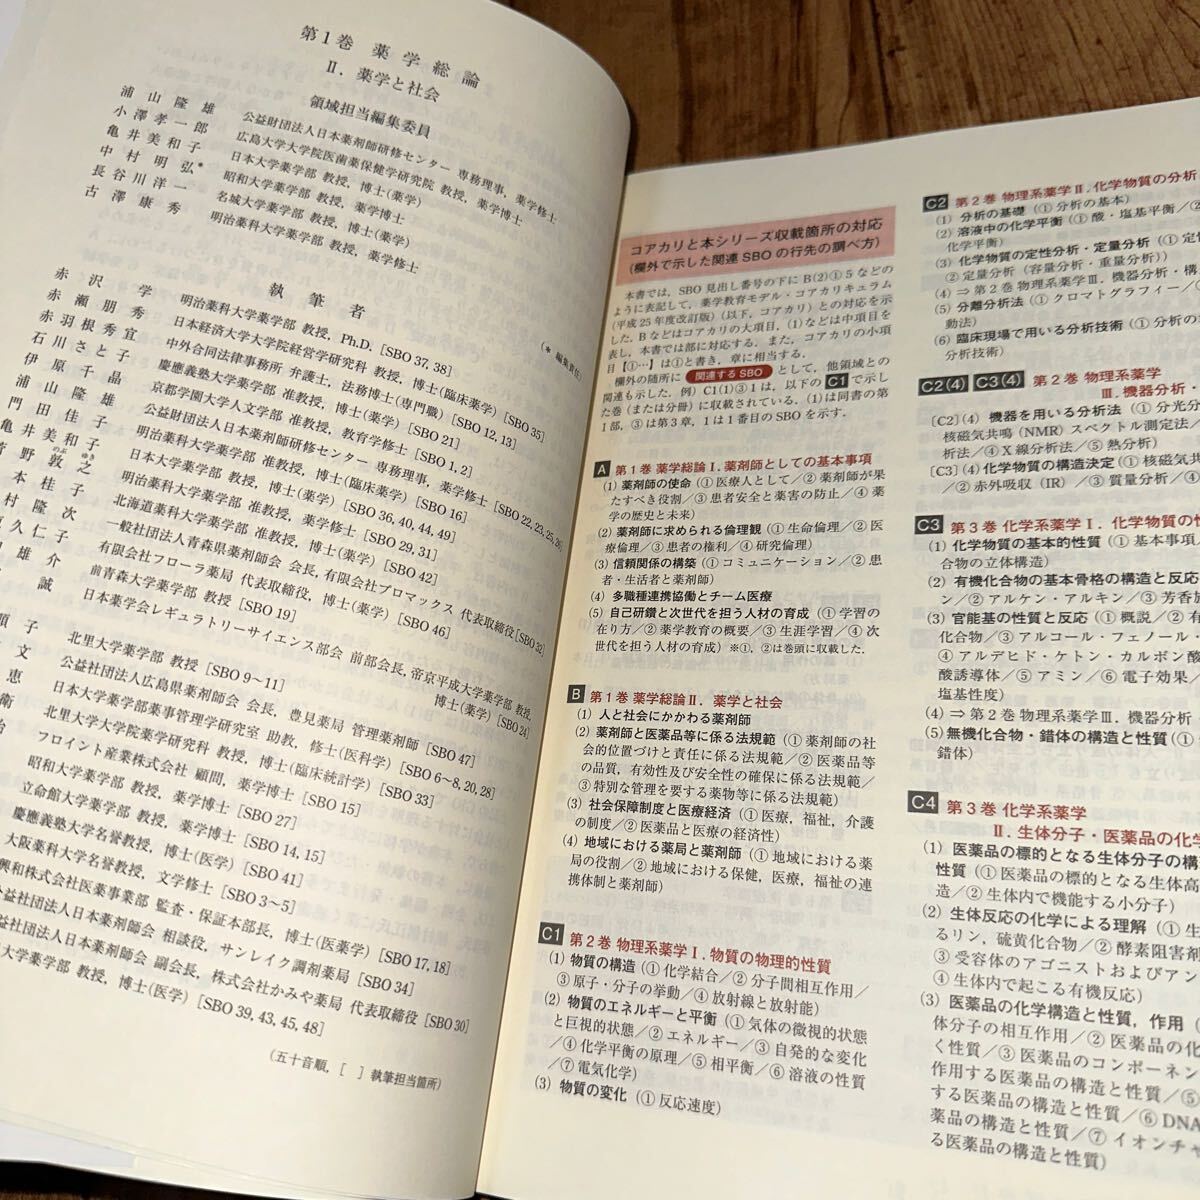 第1巻 薬学総論
Ⅱ. 薬学と社会
領域担当編集委員
浦山隆雄 公益財団法人日本薬剤師研修センター 専務理事, 薬学修士
小澤孝一郎 広島大学大学院医歯薬保健学研究院 教授, 薬学博士
亀井美和子 日本大学薬学部 教授, 博士(薬学)
中村明弘* 昭和大学薬学部 教授, 薬学博士
長谷川洋一 名城大学薬学部 教授, 博士(薬学)
古澤康秀 明治薬科大学薬学部 教授, 薬学修士
(* 編集責任)
執筆者
赤沢学 明治薬科大学薬学部 教授, Ph.D. [SBO 37, 38]
赤瀬朋秀 日本経済大学大学院経営学研究科 教授, 博士(臨床薬学) [SBO 35]
赤羽根秀宜 中外合同法律事務所 弁護士, 法務博士(専門職) [SBO 12, 13]
石川さと子 慶應義塾大学薬学部 准教授, 博士(薬学) [SBO 21]
伊原千晶 京都学園大学人文学部 准教授, 教育学修士 [SBO 1, 2]
浦山隆雄 公益財団法人日本薬剤師研修センター 専務理事, 薬学修士 [SBO 22, 23, 25, 26]
門田佳子 明治薬科大学薬学部 准教授, 博士(臨床薬学) [SBO 16]
亀井美和子 日本大学薬学部 教授, 博士(薬学) [SBO 36, 40, 44, 49]
野敦之 のぶゆき 明治薬科大学薬学部 准教授, 薬学修士 [SBO 29, 31]
本桂子 北海道薬科大学薬学部 准教授, 博士(薬学) [SBO 42]
村隆次 一般社団法人青森県薬剤師会 会長, 有限会社プロマックス 代表取締役 [SBO 32]
久仁子 有限会社フローラ薬局 代表取締役, 博士(薬学) [SBO 46]
雄介 前青森大学薬学部 教授 [SBO 19]
誠 日本薬学会レギュラトリーサイエンス部会 前部会長, 帝京平成大学薬学部 教授, 博士(薬学) [SBO 24]
順子 北里大学薬学部 教授 [SBO 9〜11]
文 公益社団法人広島県薬剤師会 会長, 豊見薬局 管理薬剤師 [SBO 47]
恵 日本大学薬学部薬事管理学研究室 助教, 修士(医科学) [SBO 6〜8, 20, 28]
衛 北里大学大学院薬学研究科 教授, 博士(臨床統計学) [SBO 33]
治 フロイント産業株式会社 顧問, 薬学博士 [SBO 15]
昭和大学薬学部 教授, 薬学博士 [SBO 27]
立命館大学薬学部 教授, 薬学博士 [SBO 14, 15]
慶應義塾大学名誉教授, 博士(医学) [SBO 41]
大阪薬科大学名誉教授, 文学修士 [SBO 3〜5]
興和株式会社医薬事業部 監査・保証本部長, 博士(医薬学) [SBO 17, 18]
公益社団法人日本薬剤師会 相談役, サンレイク調剤薬局 [SBO 34]
公益社団法人日本薬剤師会 副会長, 株式会社かみや薬局 代表取締役 [SBO 30]
大学薬学部 教授, 博士(医学) [SBO 39, 43, 45, 48]
(五十音順, [ ] 執筆担当箇所)
コアカリと本シリーズ収載箇所の対応
(欄外で示した関連 SBO の行先の調べ方)
本書では, SBO 見出し番号の下に B(2)①5 などの
ように表記して, 薬学教育モデル・コアカリキュラム
(平成25年度改訂版)(以下, コアカリ) との対応を示
した. B などはコアカリの大項目, (1)などは中項目を
表し, 本書では部に対応する. また, コアカリの小項
目【①…】は①と書き, 章に相当する.
欄外の随所に 関連する SBO として, 他領域との
関連も示した. 例) C1(1)③1 は, 以下の C1 で示し
た巻(または分冊)に収載されている. (1)は同書の第
1部, ③は第3章, 1は1番目の SBO を示す.
A 第1巻 薬学総論Ⅰ. 薬剤師としての基本事項
(1) 薬剤師の使命 (① 医療人として/② 薬剤師が果
たすべき役割/③ 患者安全と薬害の防止/④ 薬
学の歴史と未来)
(2) 薬剤師に求められる倫理観 (① 生命倫理/② 医
療倫理/③ 患者の権利/④ 研究倫理)
(3) 信頼関係の構築 (① コミュニケーション/② 患
者・生活者と薬剤師)
(4) 多職種連携協働とチーム医療
(5) 自己研鑽と次世代を担う人材の育成 (① 学習の
在り方/② 薬学教育の概要/③ 生涯学習/④ 次
世代を担う人材の育成) ※①, ②は巻頭に収載した.
B 第1巻 薬学総論Ⅱ. 薬学と社会
(1) 人と社会にかかわる薬剤師
(2) 薬剤師と医薬品等に係る法規範 (① 薬剤師の社
会的位置づけと責任に係る法規範/② 医薬品等
の品質, 有効性及び安全性の確保に係る法規範/
③ 特別な管理を要する薬物等に係る法規範)
(3) 社会保障制度と医療経済 (① 医療, 福祉, 介護
の制度/② 医薬品と医療の経済性)
(4) 地域における薬局と薬剤師 (① 地域における薬
局の役割/② 地域における保健, 医療, 福祉の連
携体制と薬剤師)
C1 第2巻 物理系薬学Ⅰ. 物質の物理的性質
(1) 物質の構造 (① 化学結合/② 分子間相互作用/
③ 原子・分子の挙動/④ 放射線と放射能)
(2) 物質のエネルギーと平衡 (① 気体の微視的状態
と巨視的状態/② エネルギー/③ 自発的な変化
/④ 化学平衡の原理/⑤ 相平衡/⑥ 溶液の性質
/⑦ 電気化学)
(3) 物質の変化 (① 反応速度)
C2 第2巻 物理系薬学Ⅱ. 化学物質の分析
(1) 分析の基礎 (① 分析の基本)
(2) 溶液中の化学平衡 (① 酸・塩基平衡/②
化学平衡)
(3) 化学物質の定性分析・定量分析 (① 定
② 定量分析 (容量分析・重量分析))
(4) ⇒ 第2巻 物理系薬学Ⅲ. 機器分析・構
(5) 分離分析法 (① クロマトグラフィー/②
動法)
(6) 臨床現場で用いる分析技術 (① 分析の
分析技術)
C2(4) C3(4) 第2巻 物理系薬学
Ⅲ. 機器分析・
[C2](4) 機器を用いる分析法 (① 分光分
核磁気共鳴 (NMR) スペクトル測定法/
析法/④ X線分析法/⑤ 熱分析)
[C3](4) 化学物質の構造決定 (① 核磁気共
/② 赤外吸収 (IR) /③ 質量分析/④
C3 第3巻 化学系薬学Ⅰ. 化学物質の性
(1) 化学物質の基本的性質 (① 基本事項/
合物の立体構造)
(2) 有機化合物の基本骨格の構造と反応
ン/② アルケン・アルキン/③ 芳香族
(3) 官能基の性質と反応 (① 概説/② 有
化合物/③ アルコール・フェノール・
④ アルデヒド・ケトン・カルボン酸
酸誘導体/⑤ アミン/⑥ 電子効果/
塩基性度)
(4) ⇒ 第2巻 物理系薬学Ⅲ. 機器分析・
(5) 無機化合物・錯体の構造と性質 (①
錯体)
C4 第3巻 化学系薬学
Ⅱ. 生体分子・医薬品の化学
(1) 医薬品の標的となる生体分子の構
性質 (① 医薬品の標的となる生体高
造/② 生体内で機能する小分子)
(2) 生体反応の化学による理解 (① 生
るリン, 硫黄化合物/② 酵素阻害剤
③ 受容体のアゴニストおよびアン
④ 生体内で起こる有機反応)
(3) 医薬品の化学構造と性質, 作用 (
体分子の相互作用/② 医薬品の化
く性質/③ 医薬品のコンポーネン
作用する医薬品の構造と性質/⑤
する医薬品の構造と性質/⑥ DNA
薬品の構造と性質/⑦ イオンチャ
る医薬品の構造と性質)